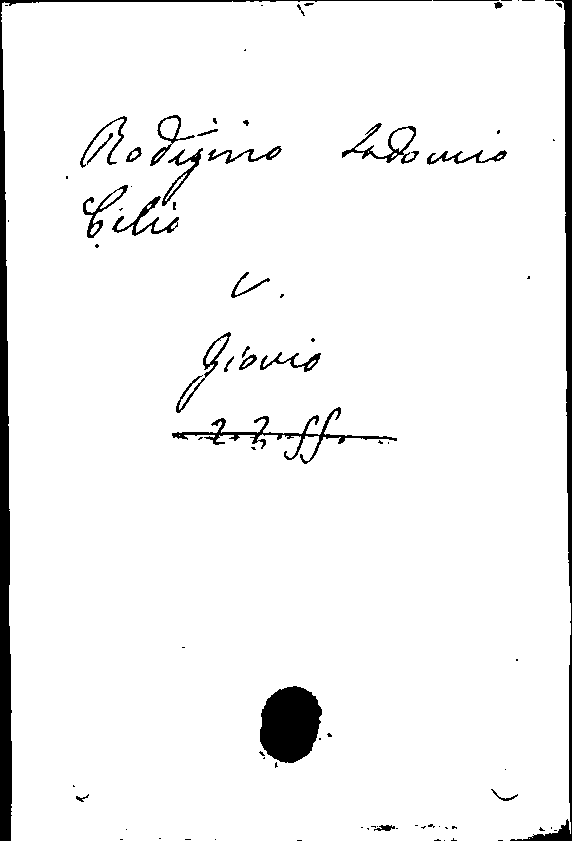 Rodigino Lodovico
Celio
V.
Giovio